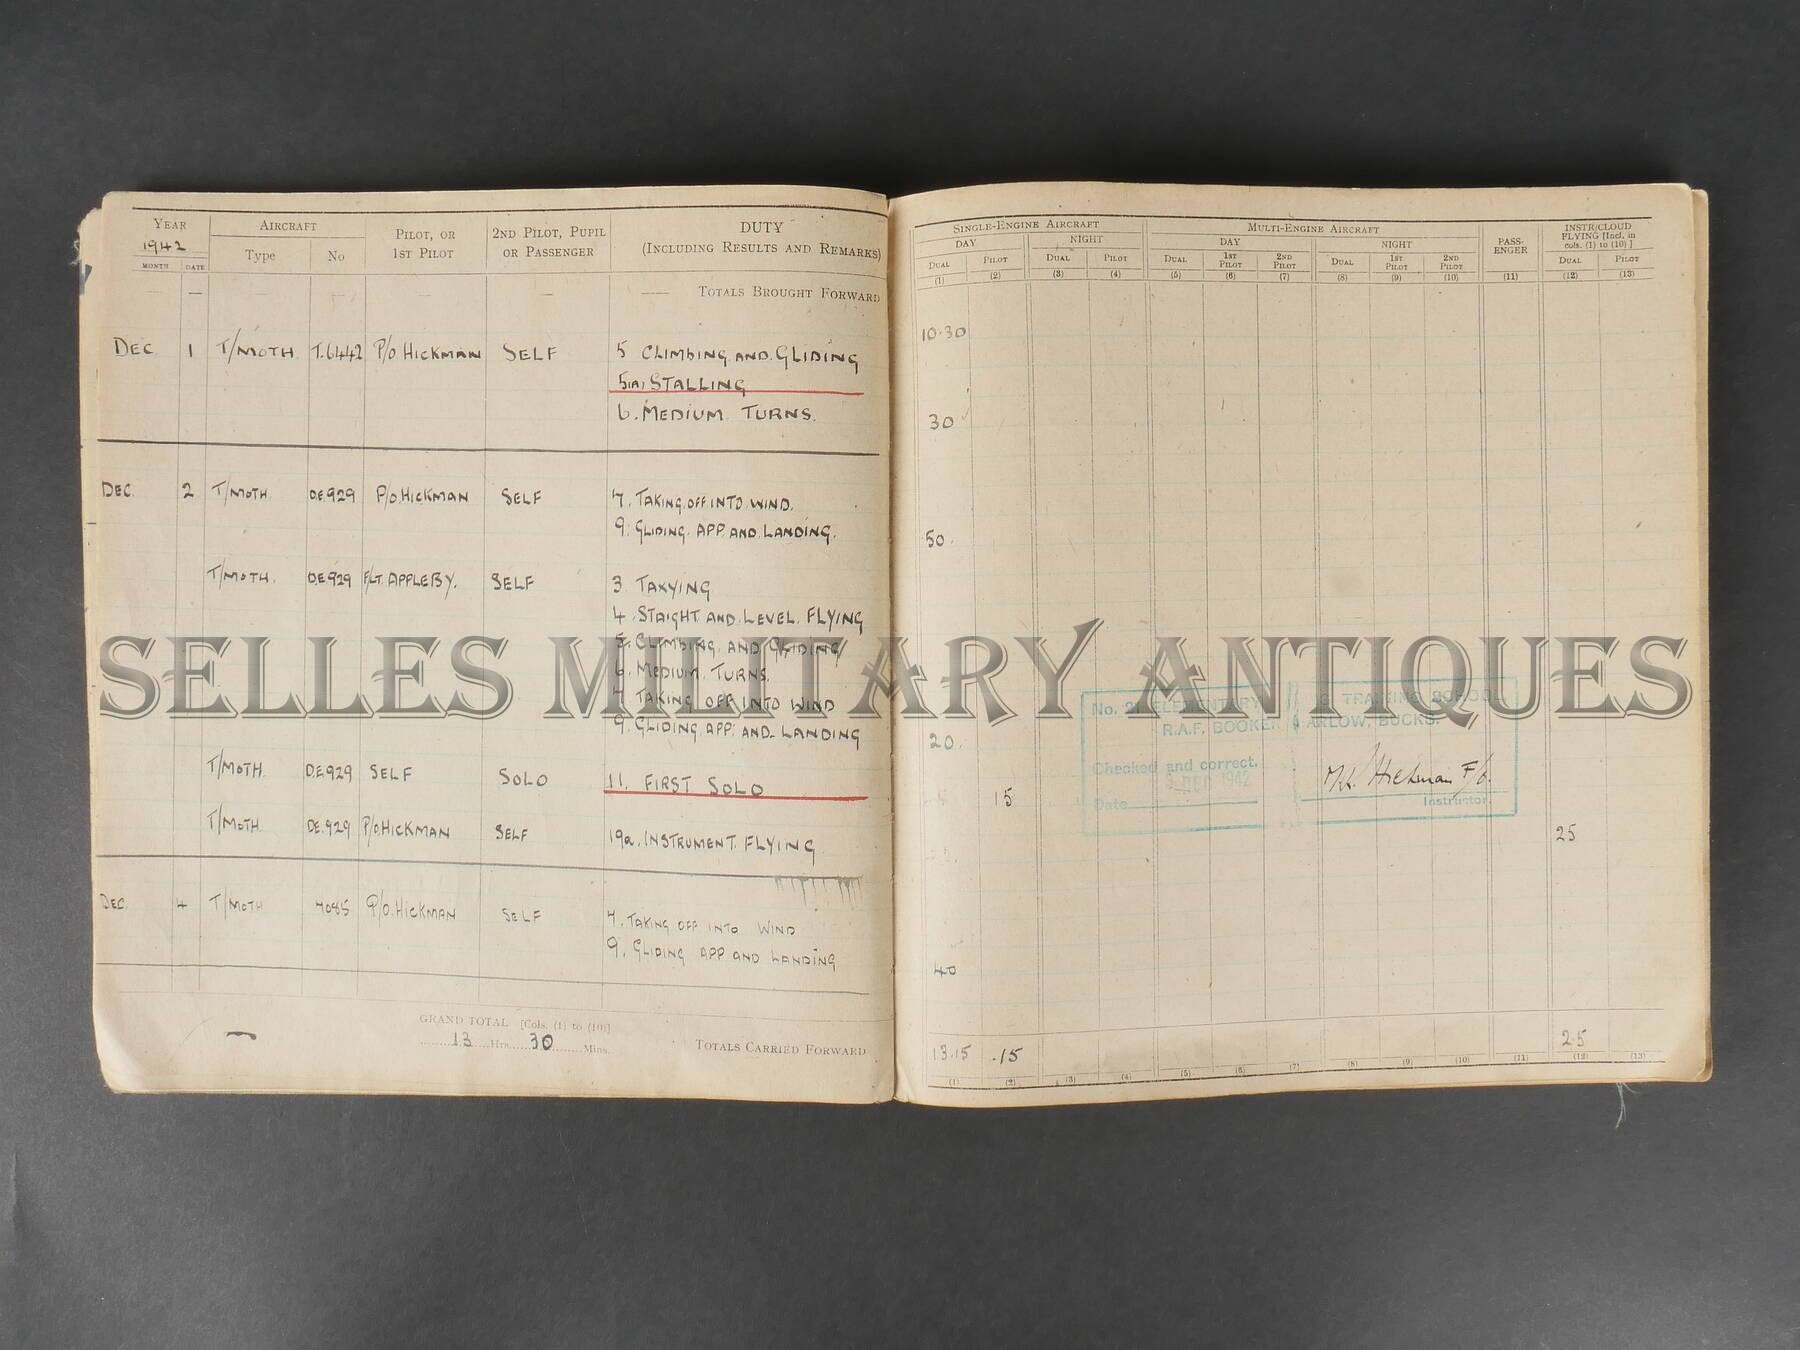 YEAR AIRCRAFT PILOT, OR 2ND PILOT, PUPIL DUTY
1942 Type No 1ST PILOT OR PASSENGER (INCLUDING RESULTS AND REMARKS)
MONTH DATE
— — — — — — — TOTALS BROUGHT FORWARD
DEC 1 T/MOTH T.6442 P/O HICKMAN SELF 5 CLIMBING AND GLIDING
5(A) STALLING
6. MEDIUM TURNS.
DEC. 2 T/MOTH. D.E.929 P/O.HICKMAN SELF 7. TAKING OFF INTO WIND.
9. GLIDING APP AND LANDING.
T/MOTH. D.E.929 F/LT. APPLEBY. SELF 3 TAXYING
4. STAIGHT AND LEVEL FLYING
5. CLIMBING AND GLIDING
6. MEDIUM TURNS.
7 TAKING OFF INTO WIND
9. GLIDING APP. AND LANDING
T/MOTH. D.E.929 SELF SOLO 11. FIRST SOLO
T/MOTH DE.929 P/O.HICKMAN SELF 19a. INSTRUMENT FLYING
DEC. 4 T/MOTH 7085 P/O.HICKMAN SELF 7. TAKING OFF INTO WIND
9. GLIDING APP AND LANDING
GRAND TOTAL [Cols. (1) to (10)]
13 Hrs. 30 Mins. TOTALS CARRIED FORWARD
SINGLE-ENGINE AIRCRAFT MULTI-ENGINE AIRCRAFT PASS-ENGER INSTR/CLOUD
FLYING [Incl. in
cols. (1) to (10)]
DAY NIGHT DAY NIGHT
DUAL PILOT DUAL PILOT DUAL 1ST PILOT 2ND PILOT DUAL 1ST PILOT 2ND PILOT DUAL PILOT
(1) (2) (3) (4) (5) (6) (7) (8) (9) (10) (11) (12) (13)
10.30
30
50.
20.
15
25
40
No. 21 ELEMENTARY G TRAINING SCHOOL
R.A.F. BOOKER ARLOW, BUCKS.
Checked and correct.
Date DEC 1942 Hickman F/O.
Instructor.
13.15 .15 25
(1) (2) (3) (4) (5) (6) (7) (8) (9) (10) (11) (12) (13)
SELLES MILITARY ANTIQUES